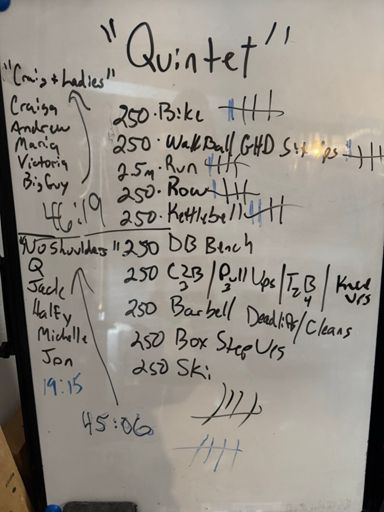 "Quintet"
"Craig + Ladies"
Craiga
Andrew
Maria
Victoria
Big Guy
46:19
250 - Bike
250 - Wall Ball GHD Situps
2.5m - Run
250 - Row
250 - Kettlebell
"No Shoulders"
Q
Jack
Halfy
Michelle
Jon
19:15
45:06
250 DB Bench
250 C2B / Pull Ups / T2B / Knee Ups
3 3 4
250 Barbell Deadlifts/Cleans
250 Box Step Ups
250 Ski